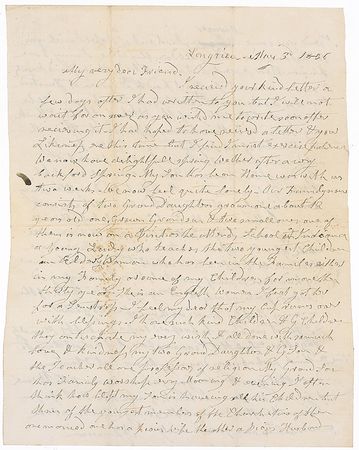 My very dear Friend.
I received your kind letter a
few days after I had written to you but I will not
wait for an answer as you wish me to write soon after
receiving it. I had hoped to have received a letter & your
Likeness, ere this time but I find I must exercise patience
We now have delightful spring weather after a very
backward Spring. My Son has been Home with us
two weeks. We now feel quite lonely. Our Family now
consists of two Grand Daughters one about the
years old one, Grown Grandson & five small ones one of
them is now on a visit
a Young Lady who teaches the two youngest Children
an Elderly woman who has been in the Families either
in my Family or some of my Children, for more than
thirty years. She is an English woman
for a I feel my dear that my life runs over
with blessings. I have such kind Children & G Children
they anticipate my very wish & all done with so much
love & kindness, my two Grand Daughters & G Son &
the Teacher all are professors of religion. My Grand Son
has Family worship every Morning & evening. I often
think how blest my Son is in having all his Children but
three of the youngest members of the Church two of them
are married one has a pious wife the other a pious Husband